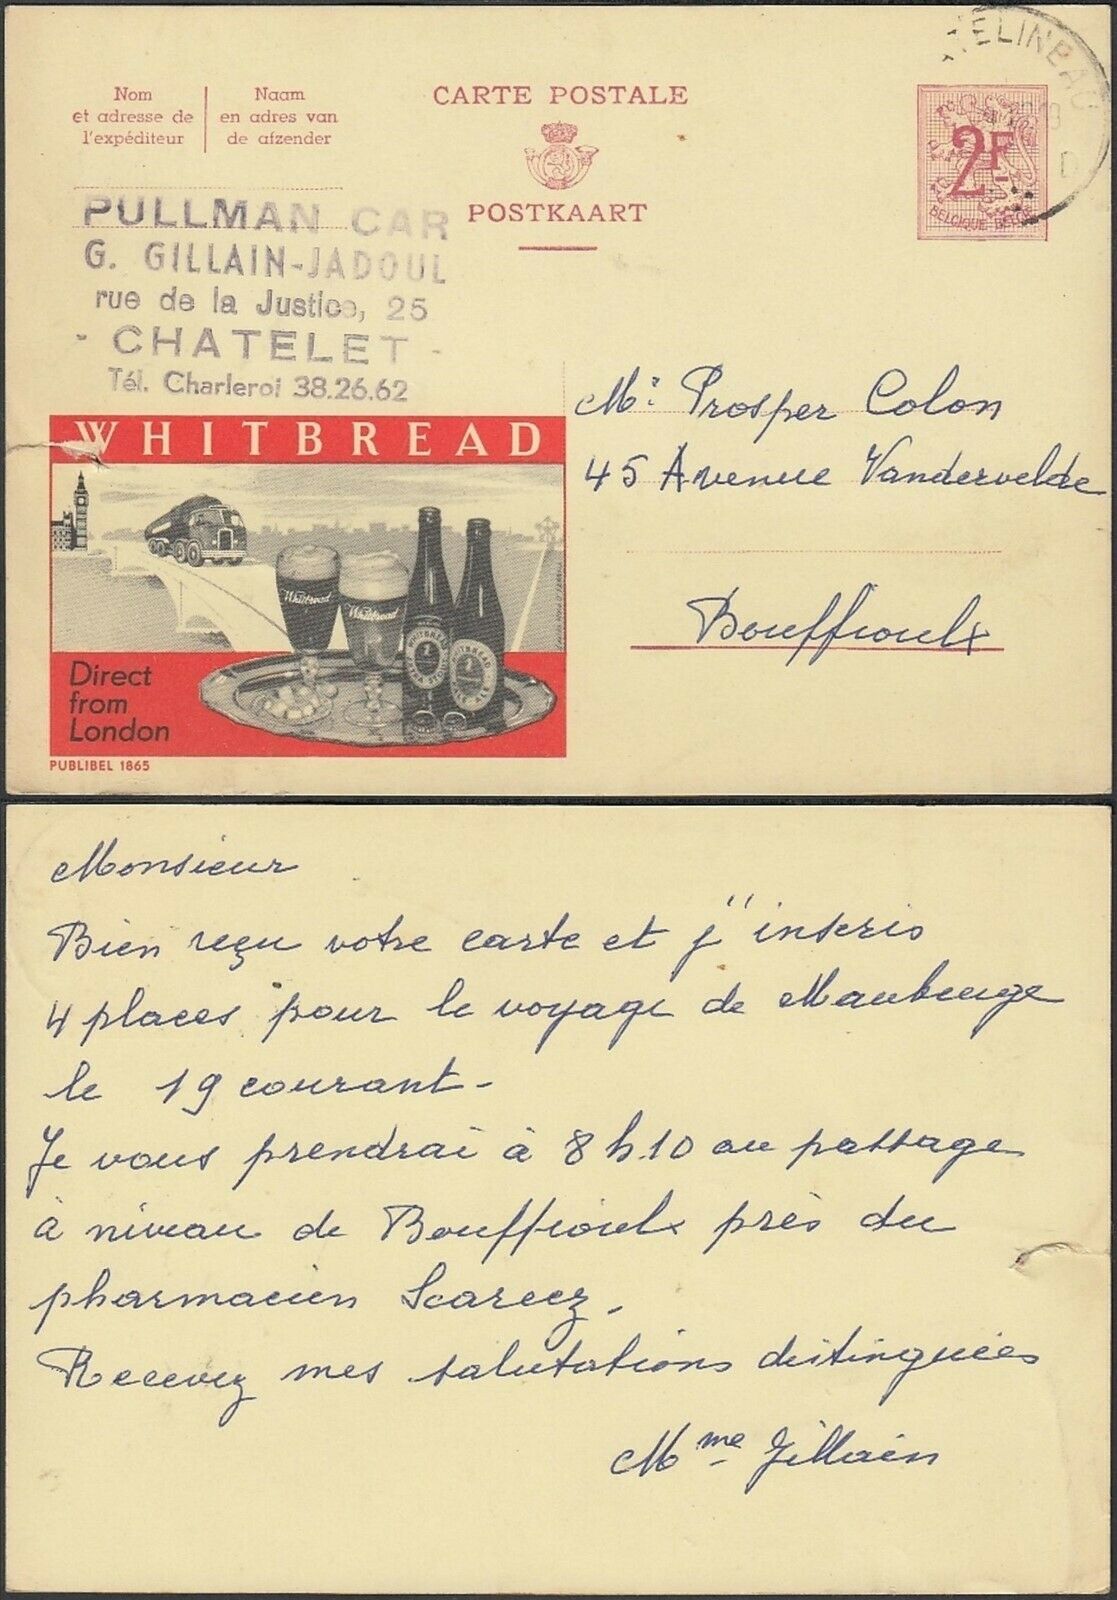 Nom
et adresse de
l'expéditeur
Naam
en adres van
de afzender
CARTE POSTALE
POSTKAART
2F
BELGIQUE-BELGIE
PULLMAN CAR
G. GILLAIN-JADOUL
rue de la Justice, 25
- CHATELET -
Tél. Charleroi 38.26.62
Mr Prosper Colon
45 Avenue Vandervelde
Bouffioulx
WHITBREAD
Whitbread
Whitbread
WHITBREAD
Direct
from
London
PUBLIBEL 1865
Monsieur
Bien reçu votre carte et j''inscris
4 places pour le voyage de Maubeuge
le 19 courant -
Je vous prendrai à 8 h.10 au passage
à niveau de Bouffioulx près du
pharmacien Scarcez.
Recevez mes salutations distinguées
Mme Gillain